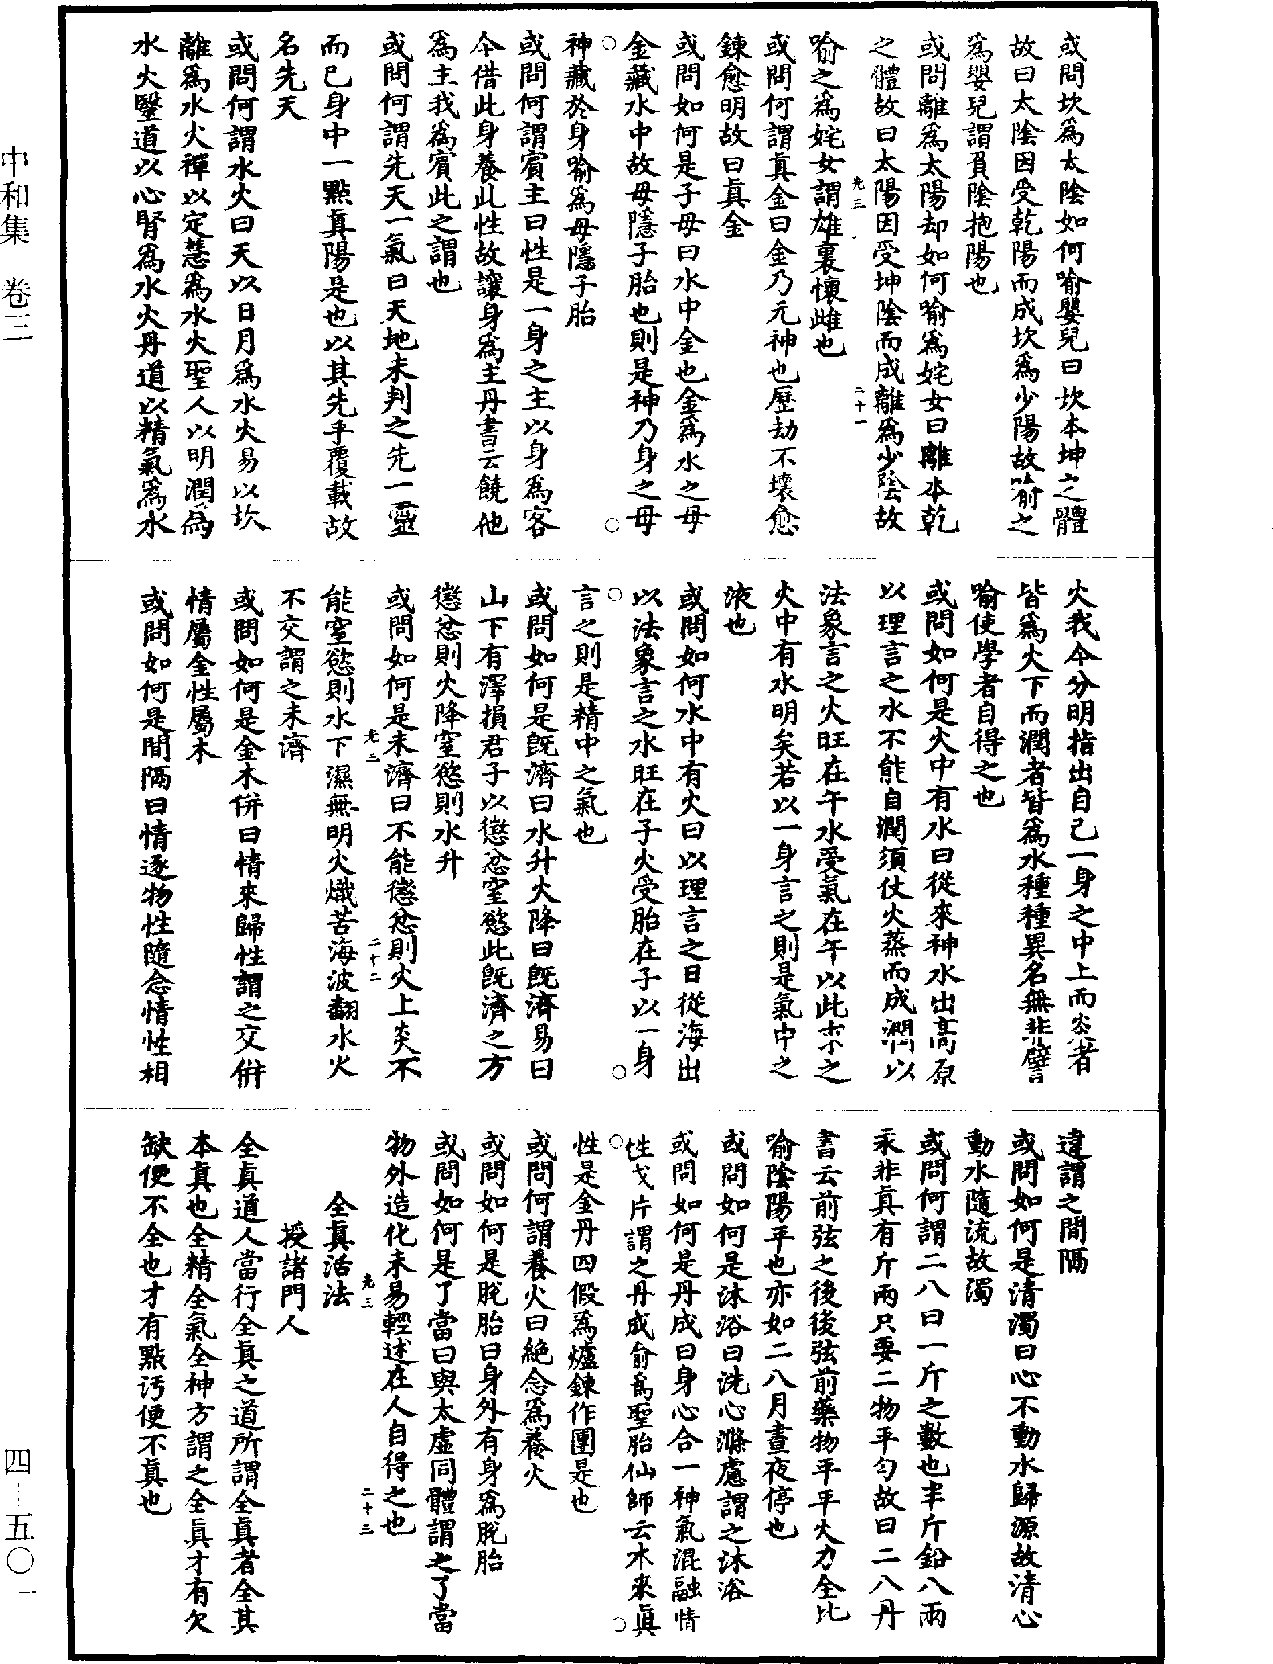 或問坎爲太陰如何喻嬰兒曰坎本坤之體
故曰太陰因受乾陽而成坎爲少陽故喻之
爲嬰兒謂負陰抱陽也
或問離爲太陽却如何喻爲姹女曰離本乾
之體故曰太陽因受坤陰而成離爲少陰故
光三 二十一
喻之爲姹女謂雄裏懷雌也
或問何謂真金曰金乃元神也歷劫不壞愈
鍊愈明故曰真金
或問如何是子母曰水中金也金爲水之母
金藏水中故母隱子胎也則是神乃身之母
神藏於身喻爲母隱子胎
或問何謂賓主曰性是一身之主以身爲客
今借此身養此性故讓身爲主丹書云饒他
爲主我爲賓此之謂也
或問何謂先天一氣曰天地未判之先一靈
而已身中一點真陽是也以其先乎覆載故
名先天
或問何謂水火曰天以日月爲水火易以坎
離爲水火禪以定慧爲水火聖人以明潤爲
水火醫道以心腎爲水火丹道以精氣爲水
火我今分明指出自己一身之中上而炎者
皆爲火下而潤者皆爲水種種異名無非譬
喻使學者自得之也
或問如何是火中有水曰從來神水出高原
以理言之水不能自潤須仗火蒸而成潤以
法象言之火旺在午水受氣在午以此求之
火中有水明矣若以一身言之則是氣中之
液也
或問如何水中有火曰以理言之日從海出
以法象言之水旺在子火受胎在子以一身
言之則是精中之氣也
或問如何是旣濟曰水升火降曰旣濟易曰
山下有澤損君子以懲忿窒慾此旣濟之方
懲忿則火降窒慾則水升
或問如何是未濟曰不能懲忿則火上炎不
光三 二十二
能窒慾則水下濕無明火熾苦海波翻水火
不交謂之未濟
或問如何是金木併曰情來歸性謂之交併
情屬金性屬木
或問如何是間隔曰情逐物性隨念情性相
違謂之間隔
或問如何是清濁曰心不動水歸源故清心
動水隨流故濁
或問何謂二八曰一斤之數也半斤鉛八兩
汞非真有斤兩只要二物平勻故曰二八丹
書云前弦之後後弦前藥物平平火力全比
喻陰陽平也亦如二八月晝夜停也
或問如何是沐浴曰洗心滌慮謂之沐浴
或問如何是丹成曰身心合一神氣混融情
性成片謂之丹成喻爲聖胎仙師云本來眞
性是金丹四假爲爐鍊作團是也
或問何謂養火曰絕念爲養火
或問如何是脫胎曰身外有身爲脫胎
或問如何是了當曰與太虛同體謂之了當
物外造化未易輕述在人自得之也
光三 二十三
全真活法
授諸門人
全真道人當行全真之道所謂全真者全其
本真也全精全氣全神方謂之全眞才有欠
缺便不全也才有點汚便不真也
中和集 卷三
四-五〇一